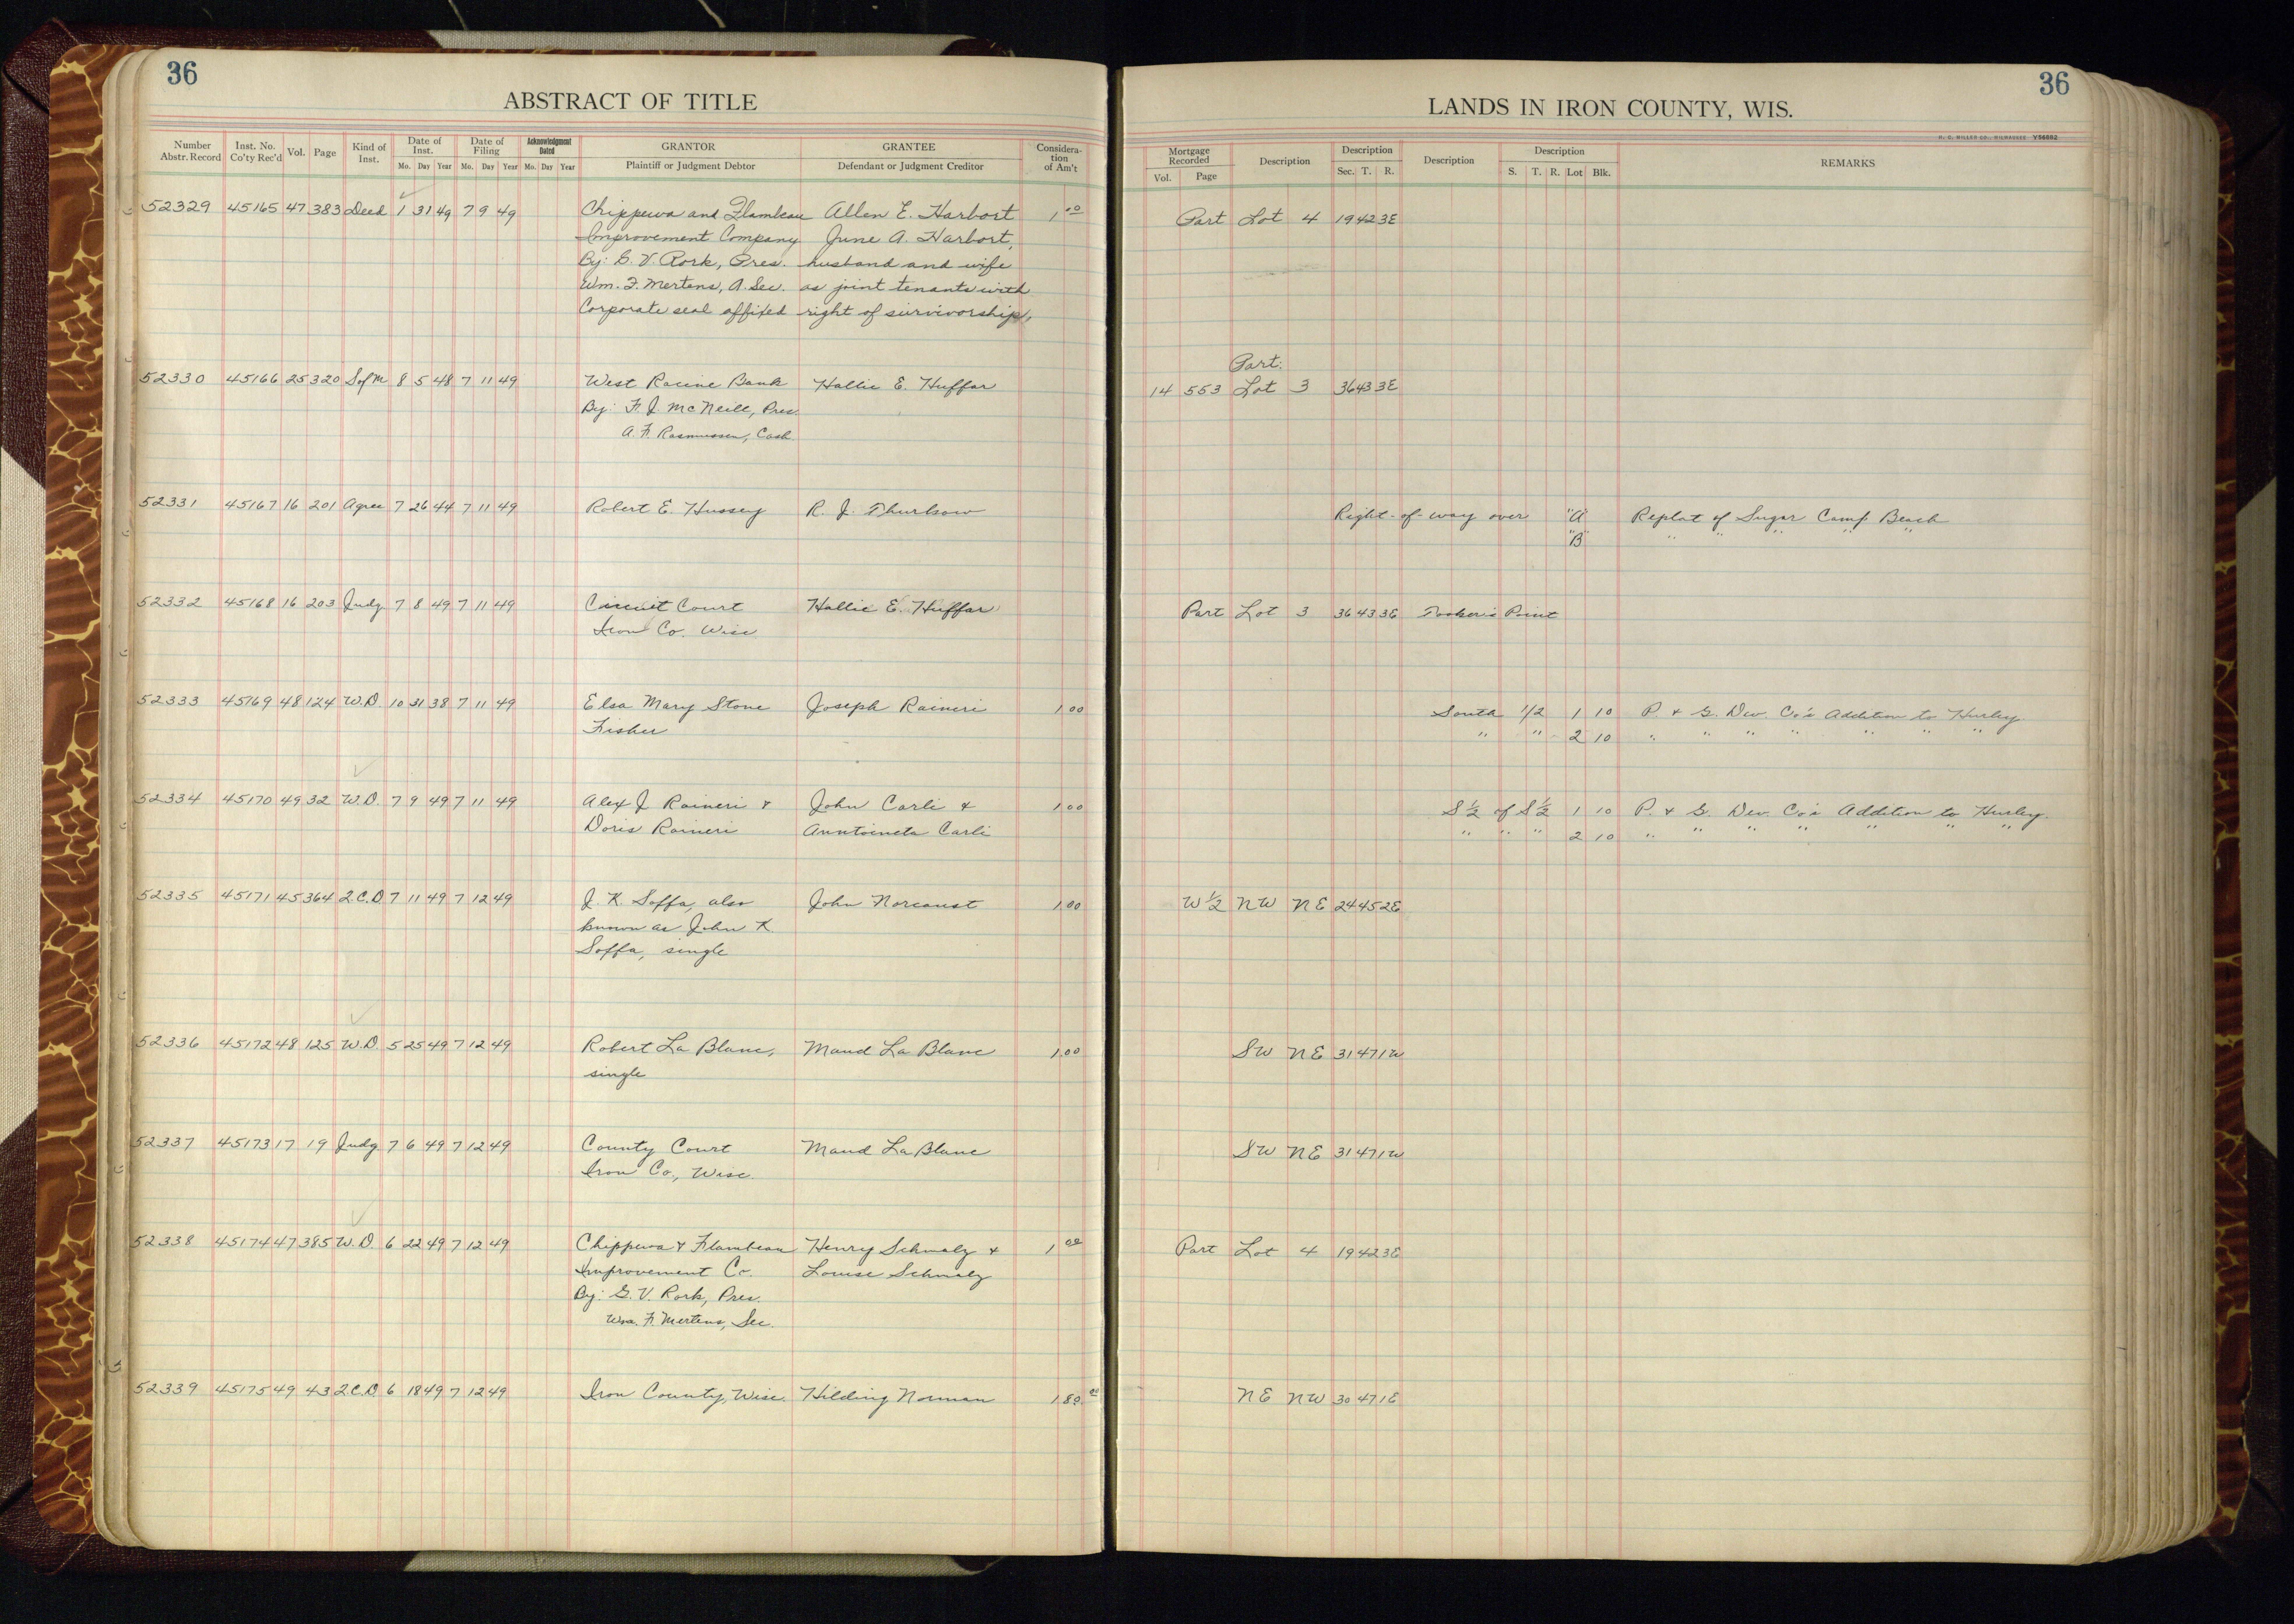 36
ABSTRACT OF TITLE
Number Abstr. Record | Inst. No. Co'ty Rec'd | Vol. | Page | Kind of Inst. | Date of Inst. Mo. Day Year | Date of Filing Mo. Day Year | Acknowledgment Dated Mo. Day Year | GRANTOR Plaintiff or Judgment Debtor | GRANTEE Defendant or Judgment Creditor | Consideration of Am't
52329 45165 47 383 Deed 1 31 49 7 9 49 Chippewa and Flambeau Allen E. Harbort 1 00
Improvement Company June A. Harbort,
By: G. V. Rork, Pres. husband and wife
Wm. F. Mertens, A. Sec. as joint tenants with
Corporate seal affixed right of survivorship,
52330 45166 25 320 S of M 8 5 48 7 11 49 West Racine Bank Hallie E. Huffar
By: F. J. McNeill, Pres
A. F. Rasmussen, Cash.
52331 45167 16 201 Agree 7 26 44 7 11 49 Robert E. Hussey R. J. Thurlsow
52332 45168 16 203 Judg 7 8 49 7 11 49 Circuit Court Hallie E. Huffar
Iron Co. Wisc
52333 45169 48 124 W.D. 10 31 38 7 11 49 Elsa Mary Stone Joseph Raineri 1 00
Fisher
52334 45170 49 32 W.D. 7 9 49 7 11 49 Alex J Raineri & John Carli & 1 00
Doris Raineri Anntoineta Carli
52335 45171 45 364 2.C.D. 7 11 49 7 12 49 J. K. Soffa, also John Norcaust 1 00
known as John K.
Soffa, single
52336 45172 48 125 W.D. 5 25 49 7 12 49 Robert La Blanc, Maud La Blanc 1 00
single
52337 45173 17 19 Judg 7 6 49 7 12 49 County Court Maud LaBlanc
Iron Co., Wisc.
52338 45174 47 385 W.D. 6 22 49 7 12 49 Chippewa & Flambeau Henry Schmalz & 1 00
Improvement Co. Louise Schmalz
By: G. V. Rork, Pres.
Wm. F. Mertens, Sec.
52339 45175 49 43 2.C.D. 6 18 49 7 12 49 Iron County, Wisc. Hilding Norman
36
LANDS IN IRON COUNTY, WIS.
H. C. MILLER CO., MILWAUKEE Y56882
Mortgage Recorded Vol. Page | Description | Description Sec. T. R. | Description | Description S. T. R. Lot Blk. | REMARKS
Part Lot 4 19 42 3E
Part:
14 553 Lot 3 36 43 3E
Right-of-way over "A" Replat of Sugar Camp Beach
"B" " " " " "
Part Lot 3 36 43 3E Tooker's Point
South 1/2 1 10 P. & G. Dev. Co's Addition to Hurley
" " 2 10 " " " " " " "
S 1/2 of S 1/2 1 10 P. & G. Dev. Co's Addition to Hurley.
" " " 2 10 " " " " " " "
W 1/2 NW NE 24 45 2E
SW NE 31 47 1W
SW NE 31 47 1W
Part Lot 4 19 42 3E
NE NW 30 47 1E